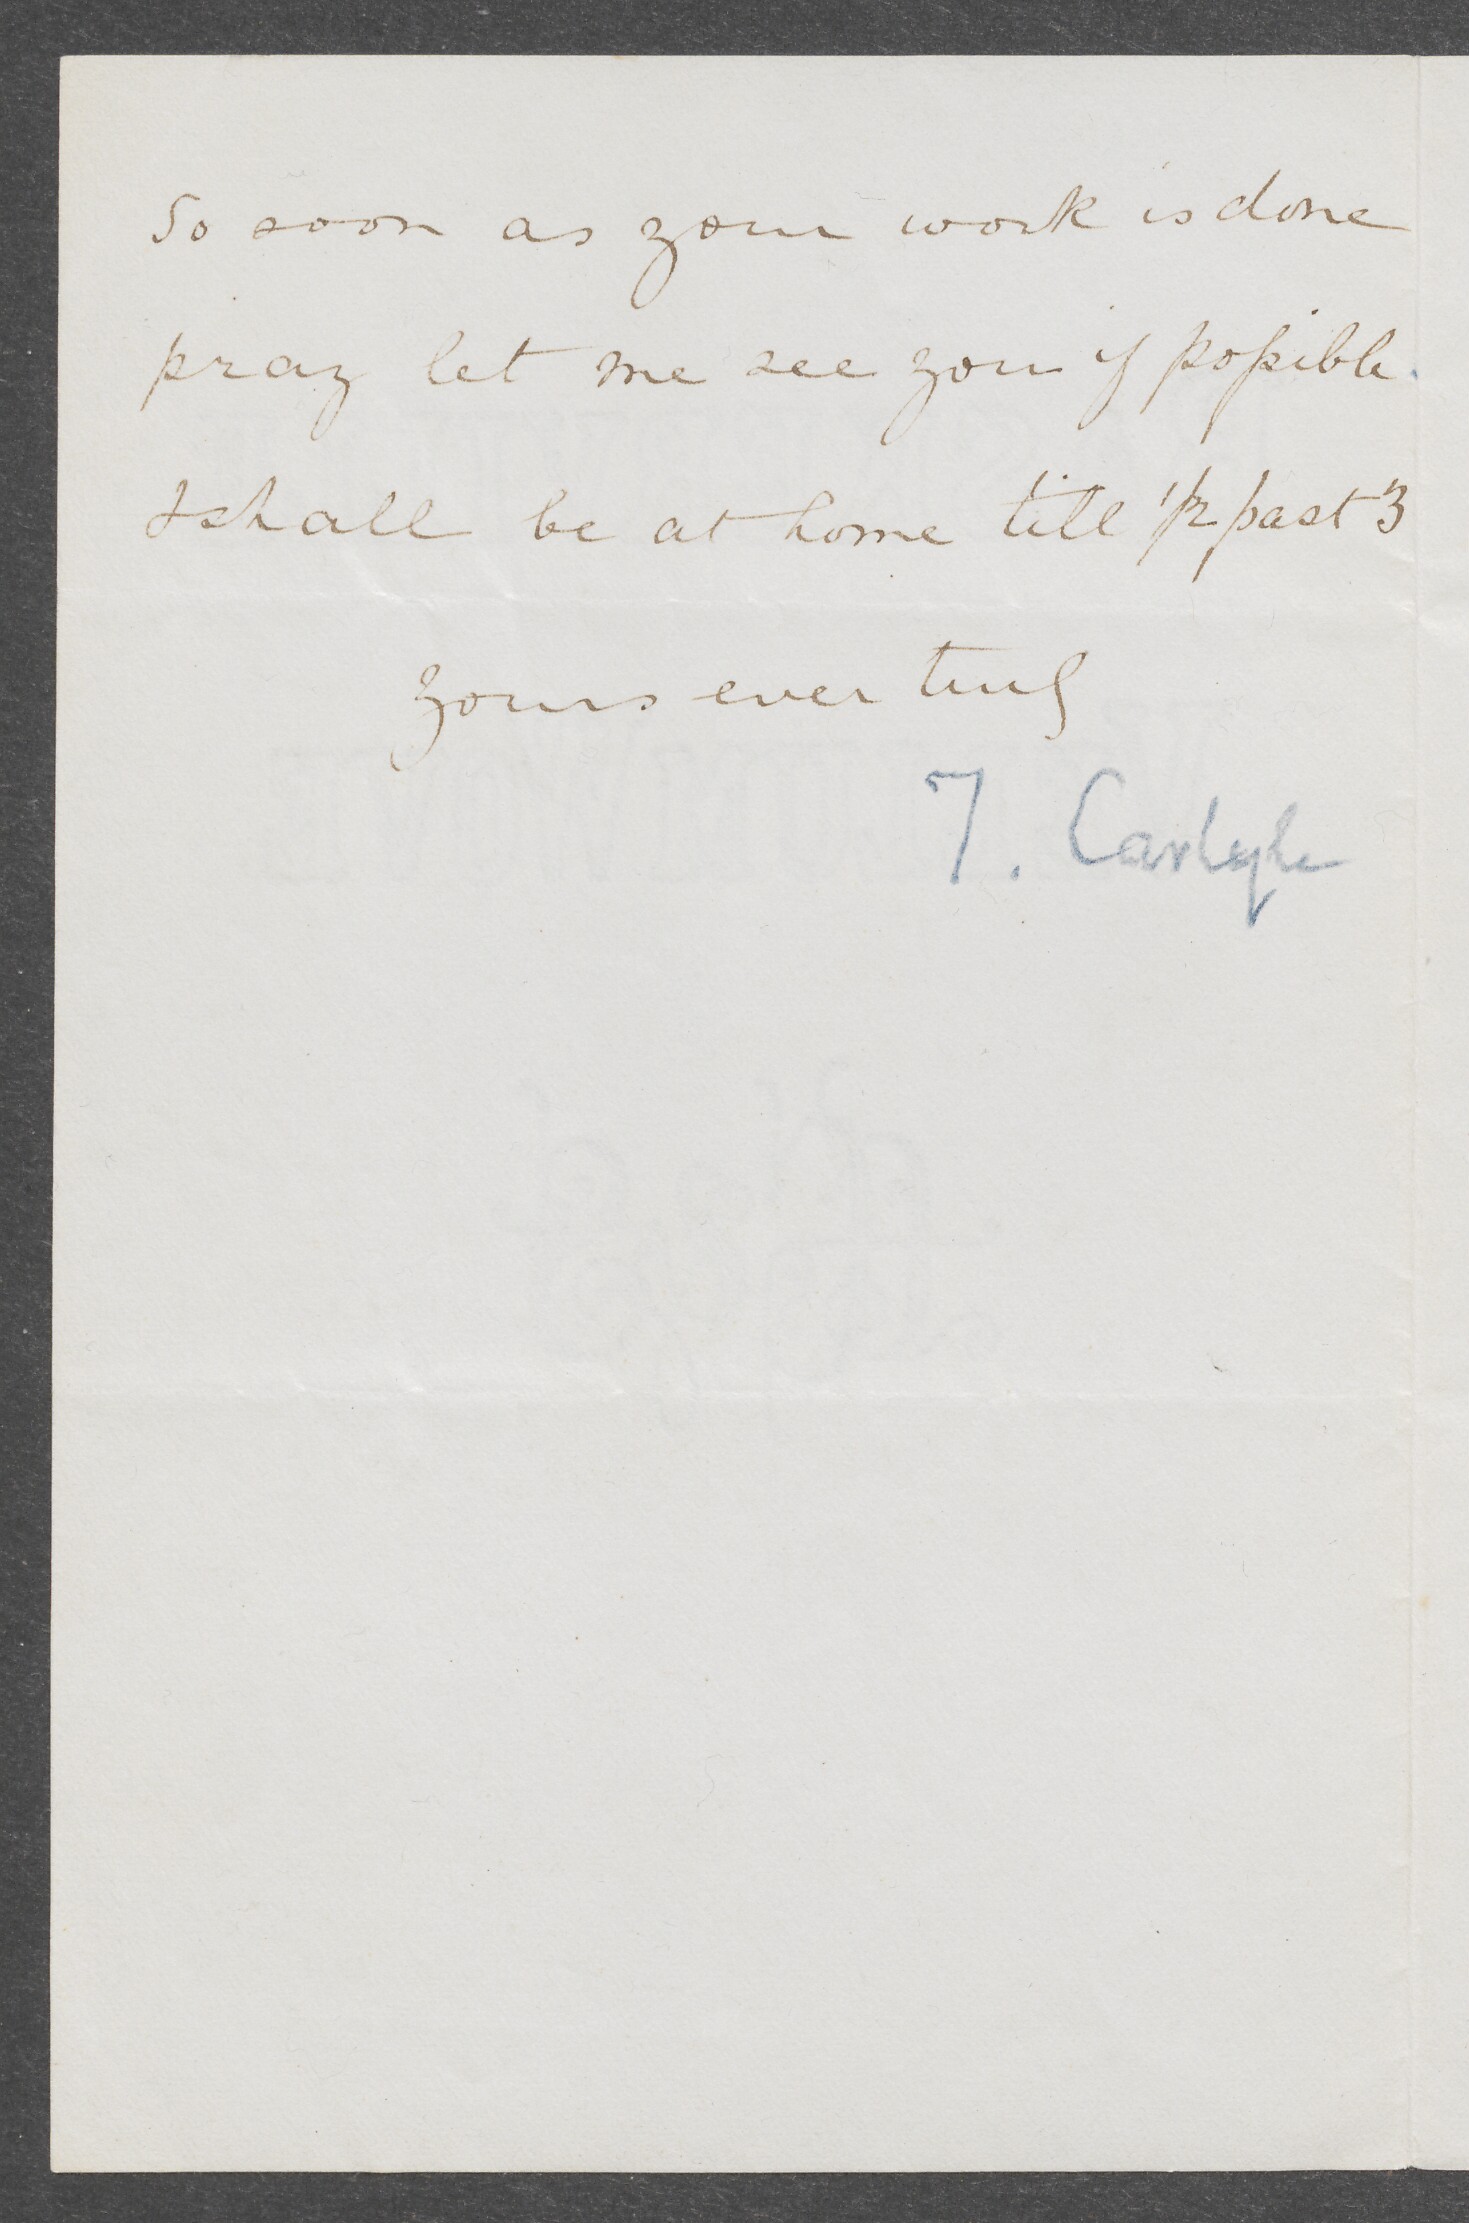 So soon as your work is done
pray let me see you if possible.
I shall be at home till 1/2 past 3
yours ever truly
T. Carlyle